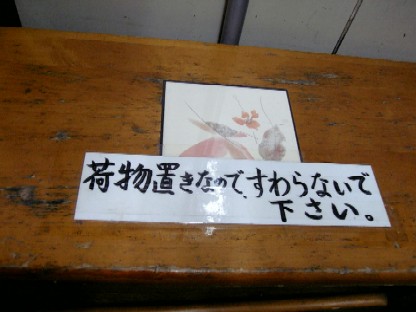 荷物置きなので、すわらないで
下さい。